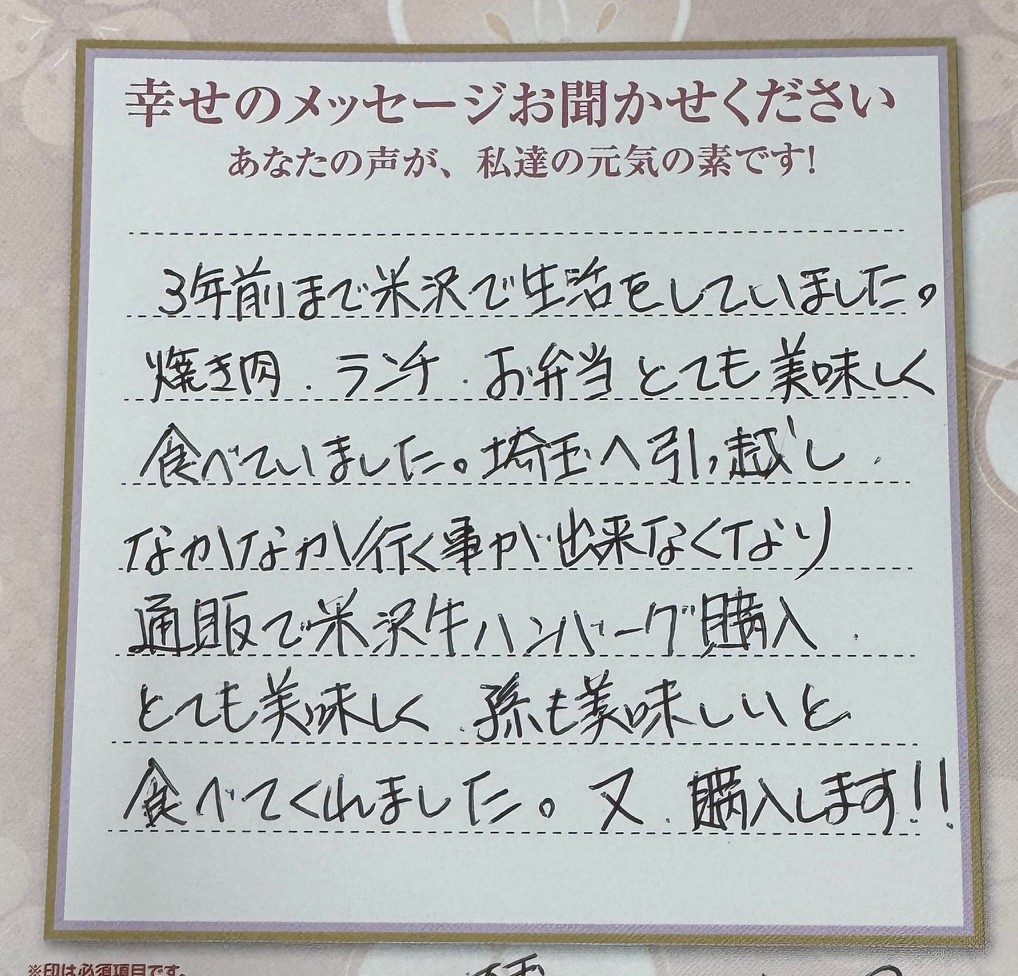 幸せのメッセージお聞かせください
あなたの声が、私達の元気の素です!
3年前まで米沢で生活をしていました。
焼き肉.ランチ.お弁当とても美味しく
食べていました。埼玉へ引っ越し.
なかなか行く事が出来なくなり
通販で米沢牛ハンバーグ購入.
とても美味しく.孫も美味しいと
食べてくれました。又.購入します!!
※印は必須項目です。